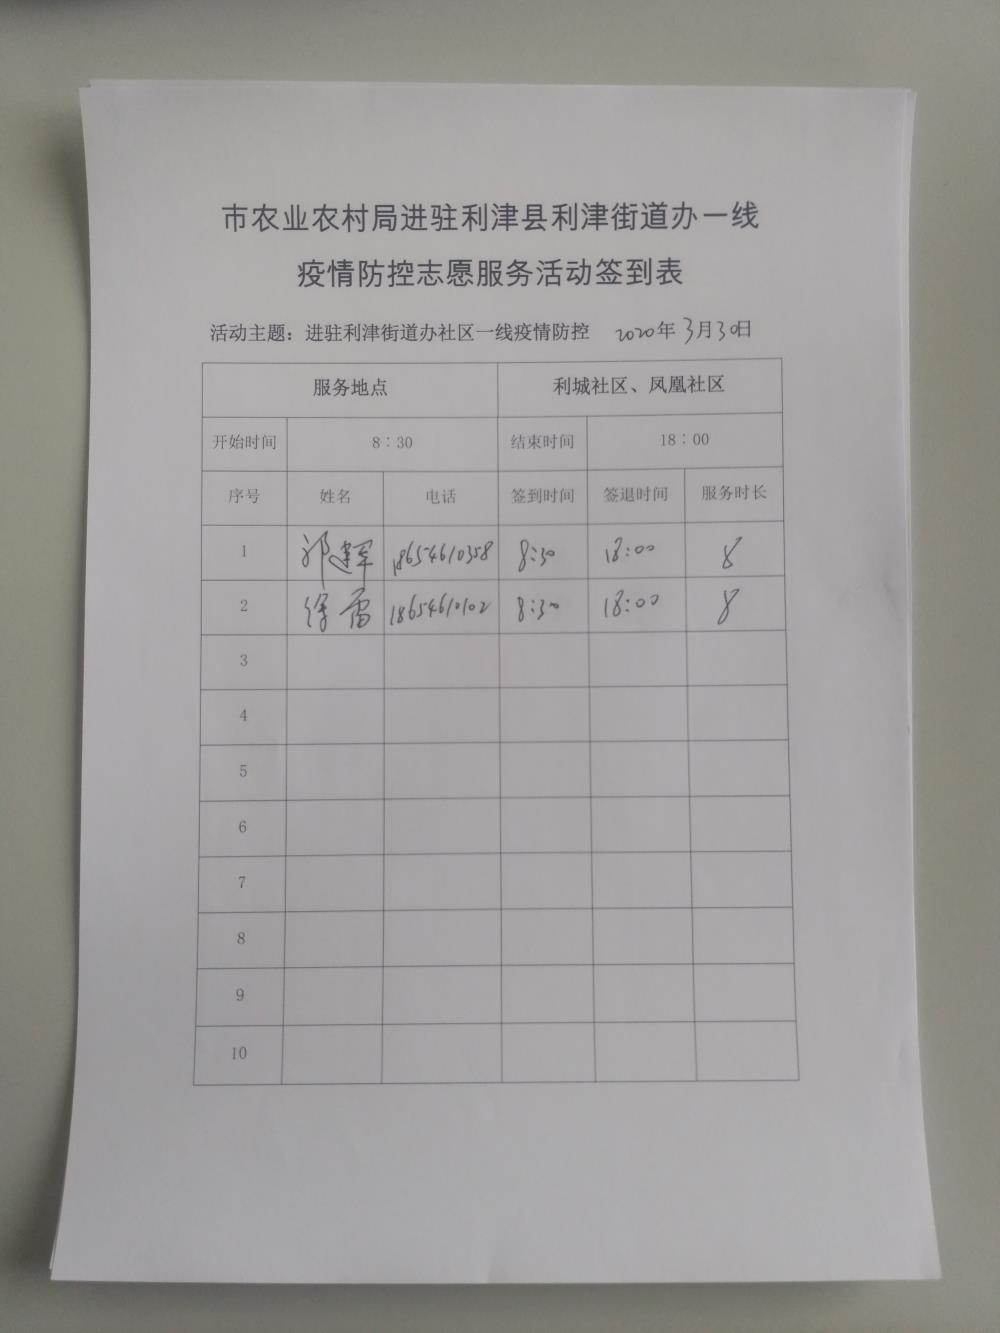 市农业农村局进驻利津县利津街道办一线
疫情防控志愿服务活动签到表
活动主题：进驻利津街道办社区一线疫情防控 2020年3月30日
服务地点 利城社区、凤凰社区
开始时间 8：30 结束时间 18：00
序号 姓名 电话 签到时间 签退时间 服务时长
1 祁建军 18654610358 8:30 18:00 8
2 徐雷 18654610102 8:30 18:00 8
3
4
5
6
7
8
9
10